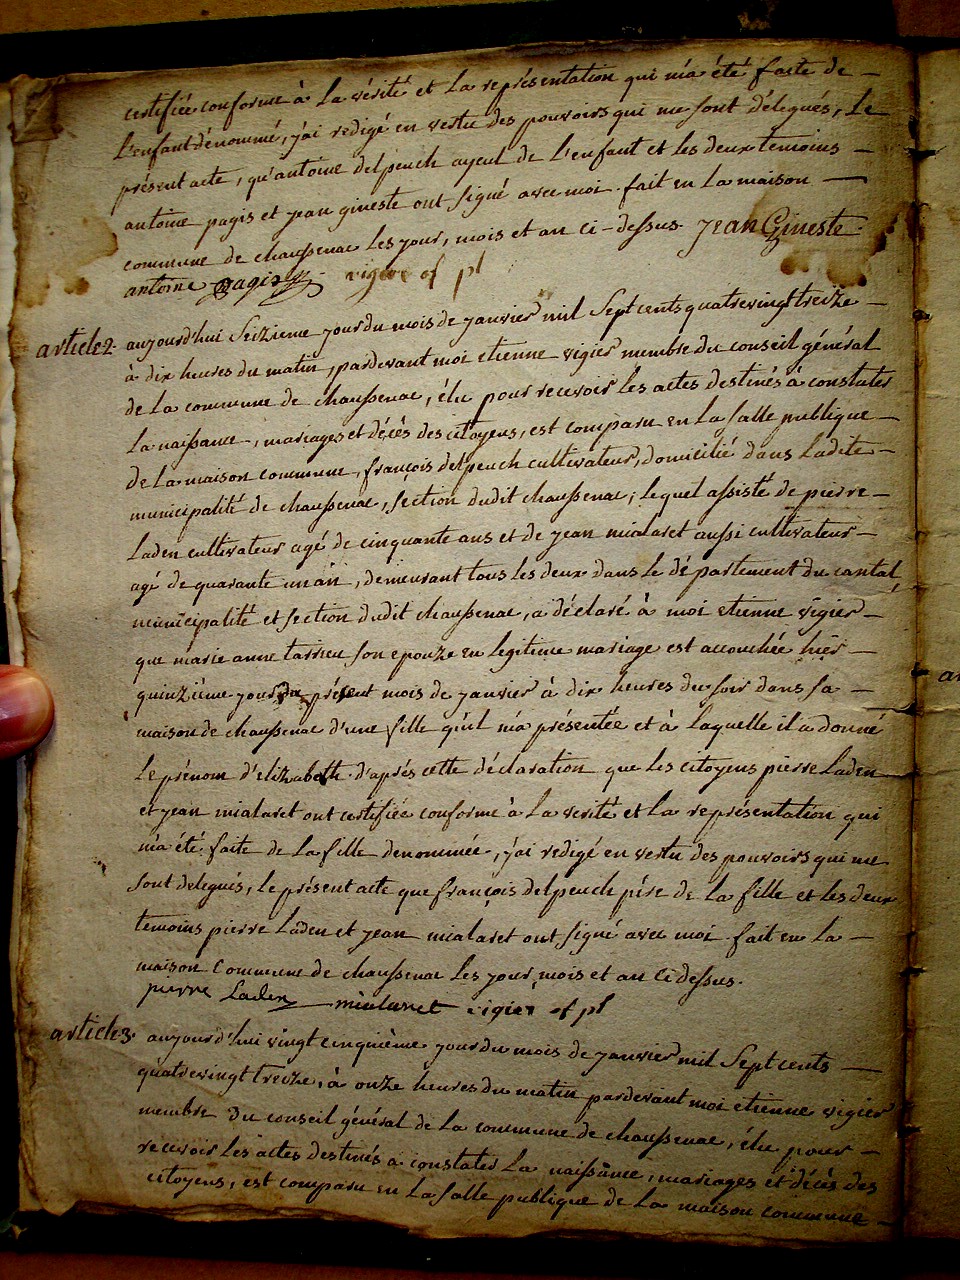 certifiée conforme à la vérité et la représentation qui m'a été faite de —
l'enfant dénommé, j'ai redigé en vertu des pouvoirs qui me sont délegués, le
présent acte, qu'antoine delpeuch ayeul de l'enfant et les deux temoins —
antoine pagis et jean gineste ont signé avec moi. fait en la maison —
commune de chaussenac les jour, mois et an ci-dessus. Jean Gineste
antoine pagis vigier of pl
article 2. aujourd'hui seizieme jour du mois de janvier mil sept cents quatrevingt treize —
à dix heures du matin, pardevant moi etienne vigier membre du conseil général
de la commune de chaussenac, élu pour recevoir les actes destinés à constater
la naissance, mariages et décès des citoyens, est comparu en la salle publique —
de la maison commune, françois delpeuch cultivateur, domicilié dans ladite —
municipalité de chaussenac, section dudit chaussenac, lequel assisté de pierre —
laden cultivateur agé de cinquante ans et de jean mialaret aussi cultivateur —
agé de quarante un an, demeurant tous les deux dans le département du cantal,
municipalité et section dudit chaussenac, a déclaré à moi etienne vigier —
que marie anne tarrieu son epouze en legitime mariage est accouchée hier —
quinzième jour du présent mois de janvier à dix heures du soir dans sa —
maison de chaussenac d'une fille qu'il m'a présentée et à laquelle il a donné
le prénom d'elizabeth. d'après cette déclaration que les citoyens pierre laden
et jean mialaret ont certifiée conforme à la verité et la représentation qui
m'a été faite de la fille denommée, j'ai redigé en vertu des pouvoirs qui me
sont delegués, le présent acte que françois delpeuch père de la fille et les deux
temoins pierre laden et jean mialaret ont signé avec moi. fait en la —
maison commune de chaussenac les jour, mois et an ci dessus.
pierre laden mialaret vigier of pl
article 3. aujourd'hui vingt cinquième jour du mois de janvier mil sept cents —
quatrevingt treize, à onze heures du matin pardevant moi etienne vigier
membre du conseil général de la commune de chaussenac, élu pour —
recevoir les actes destinés a constater la naissance, mariages et décès des
citoyens, est comparu en la salle publique de la maison commune —